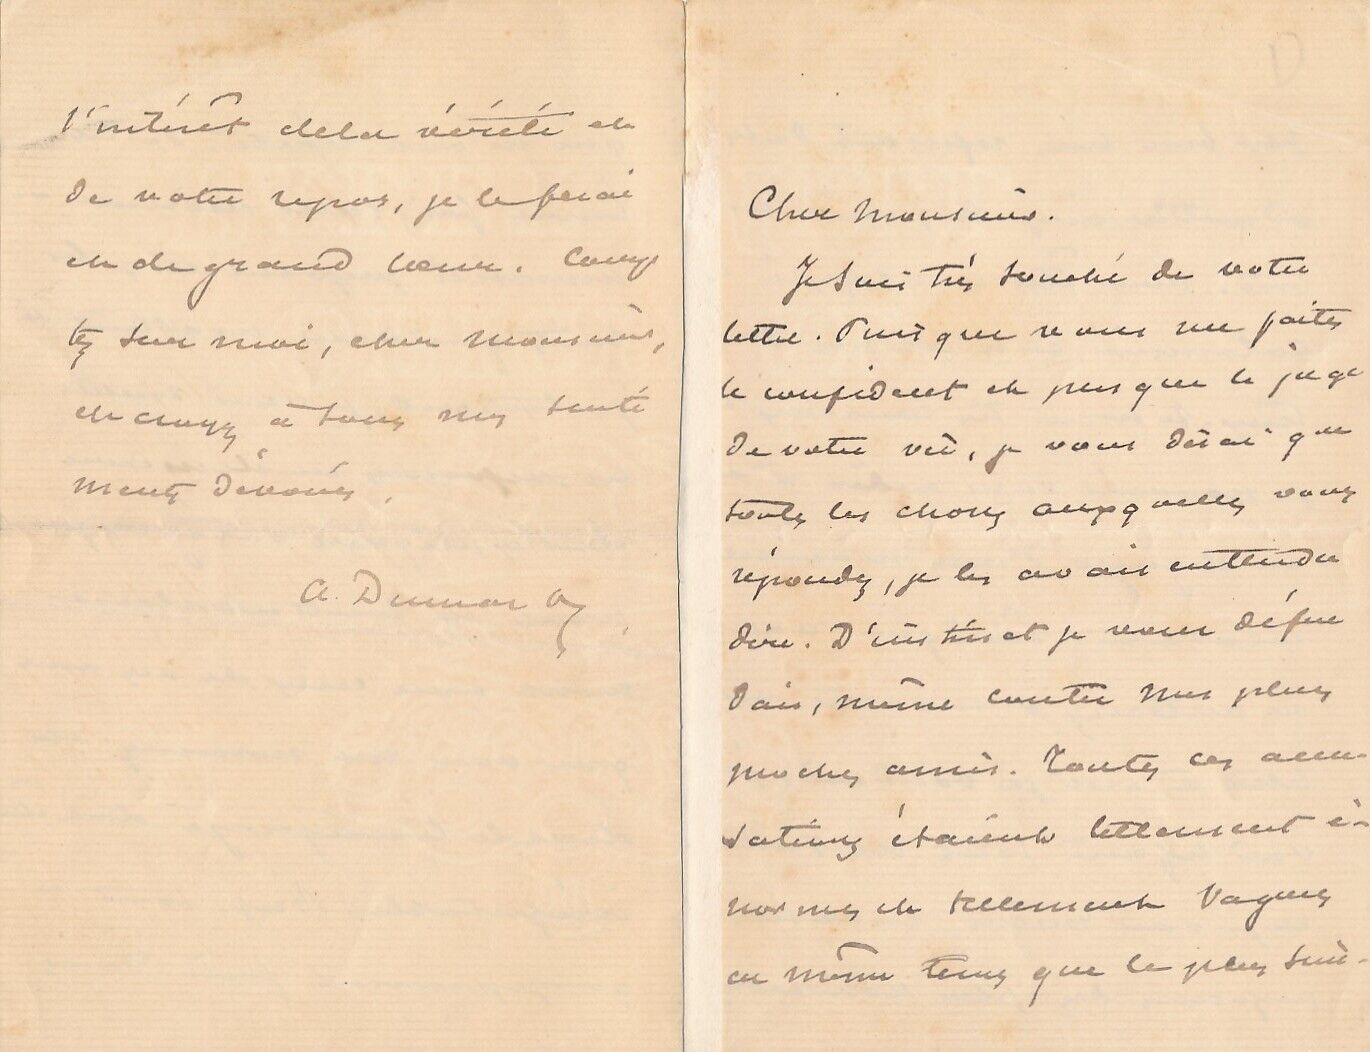 Cher Monsieur.
Je suis très touché de votre
lettre. Puisque vous me faites
le confident et presque le juge
de votre vie, je vous dirai que
toutes les choses auxquelles vous
répondez, je les avais entendu
dire. D'instinct je vous défen
dais, même contre mes plus
proches amis. Toutes ces accu-
sations étaient tellement é-
normes et tellement vagues
en même temps que le plus sim-
l'intérêt de la vérité et
de votre repos, je le ferai
et de grand cœur. Comp
tez sur moi, cher Monsieur,
et croyez à tous mes senti
ments dévoués.
A. Dumas